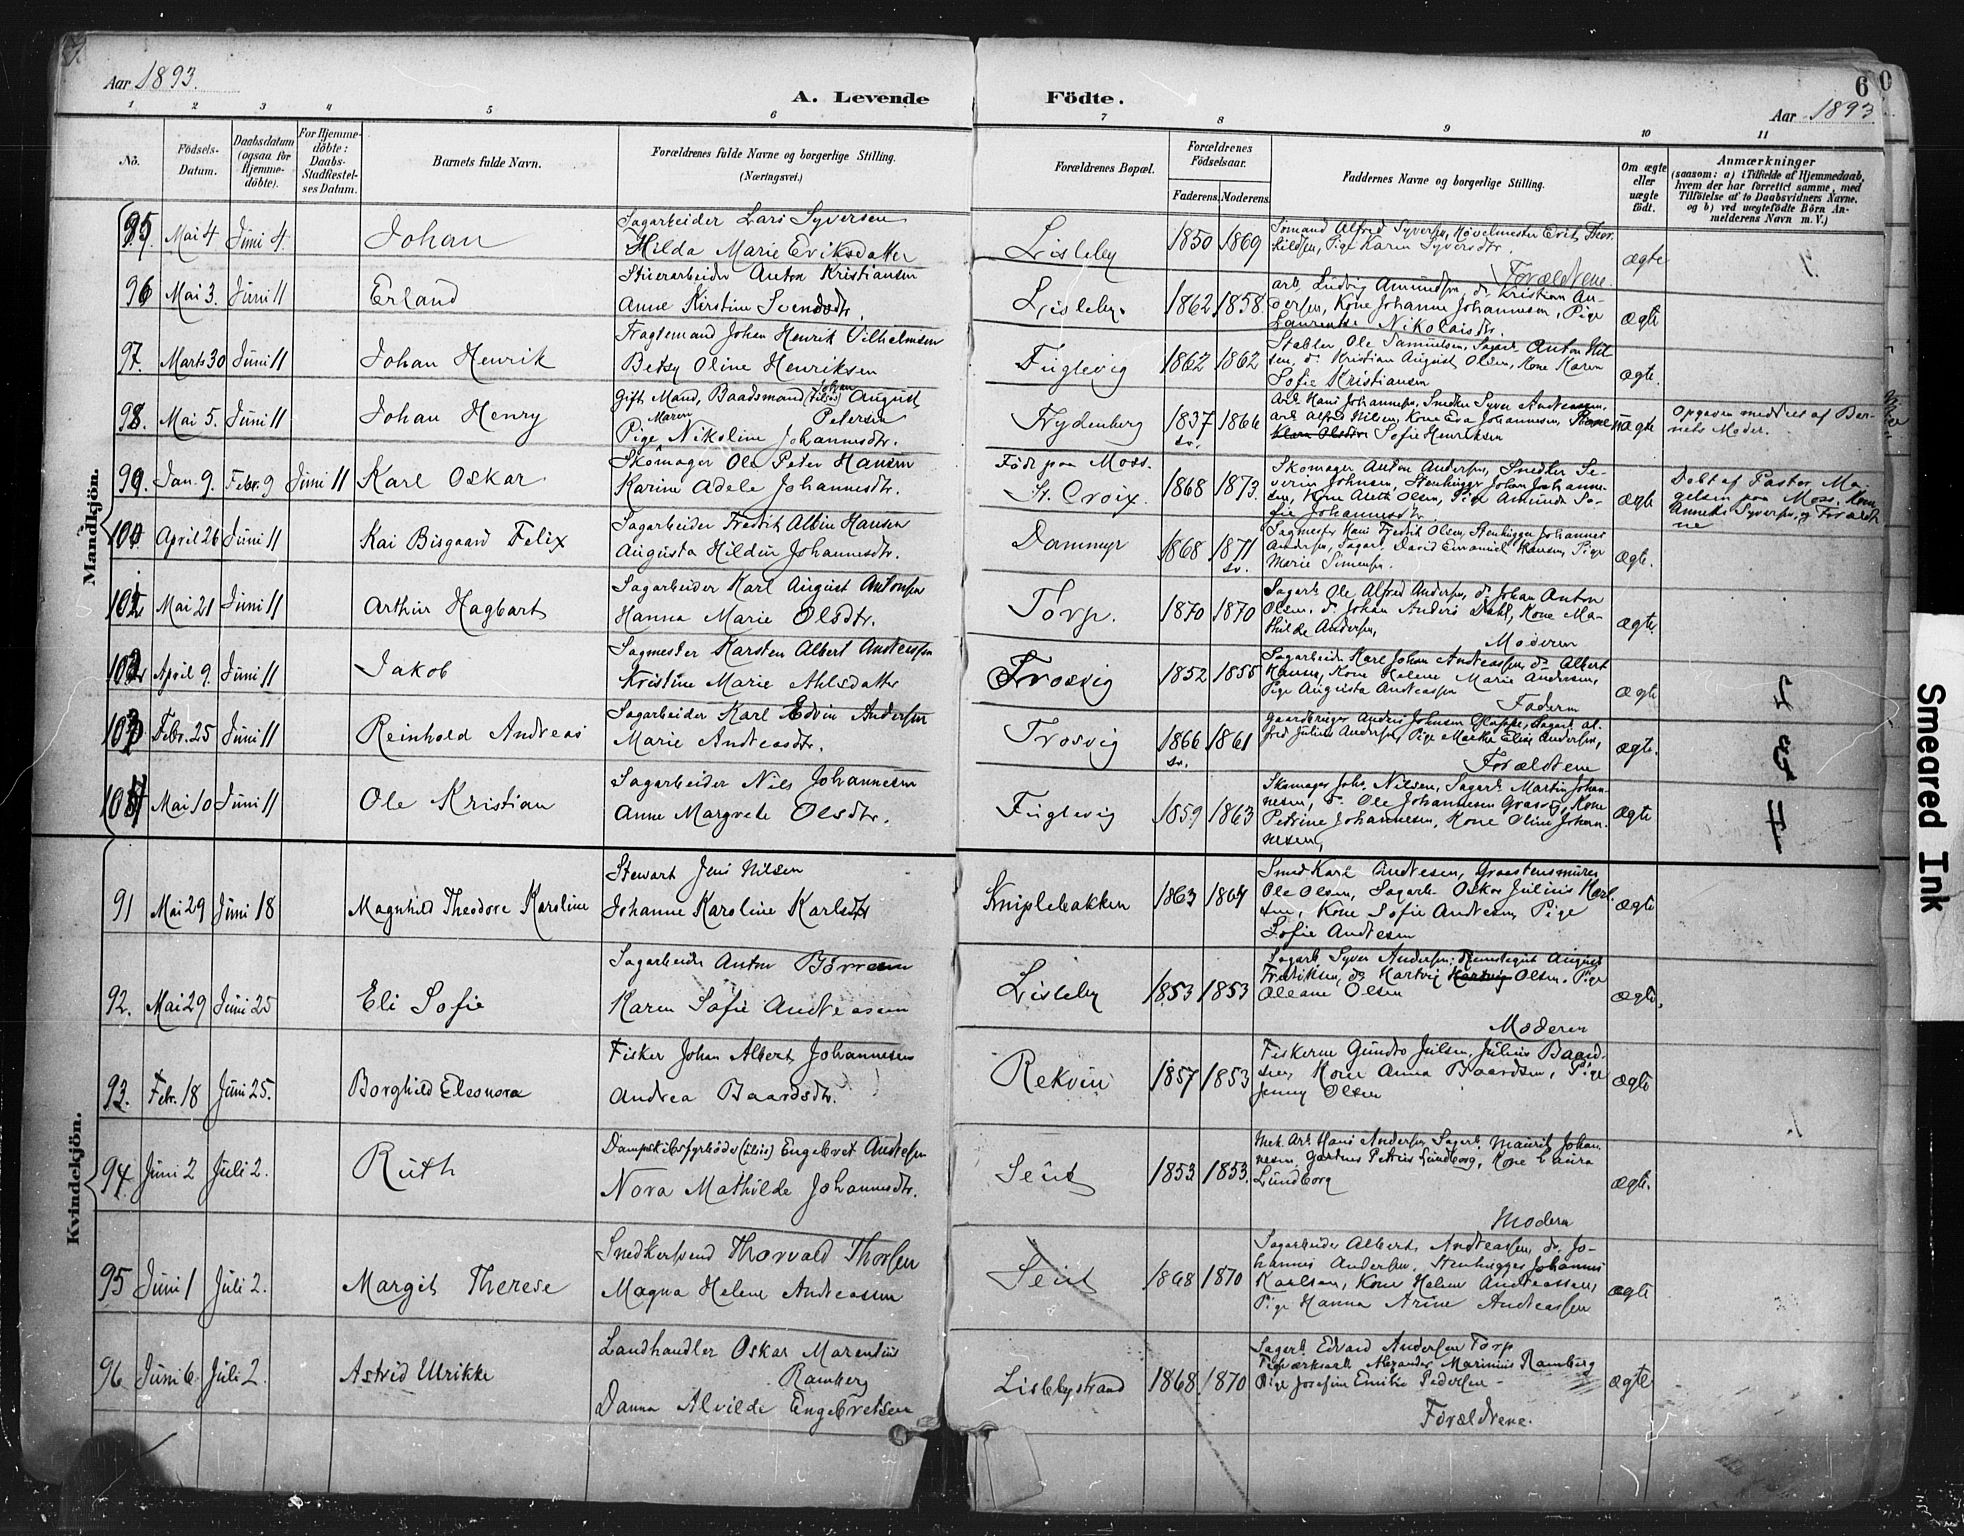 Aar 1893.
A. Levende Födte.
6
Aar 1893
1 2 3 4 5 6 7 8 9 10 11
No.
Födsels-
Datum.
Daabsdatum
(ogsaa for
Hjemme-
döbte).
For Hjemme-
döbte:
Daabs-
Stadfestel-
ses Datum.
Barnets fulde Navn.
Forældrenes fulde Navne og borgerlige Stilling.
(Næringsvei.)
Forældrenes Bopæl.
Forældrenes
Födselsaar.
Faderens. Moderens.
Faddernes Navne og borgerlige Stilling.
Om ægte
eller
uægte
födt.
Anmærkninger
(saasom: a) i Tilfælde af Hjemmedaab,
hvem der har forrettet samme, med
Tilföielse af to Daabsvidners Navne.
og b) ved uægtefödte Börn An-
melderens Navn m. V.)
Mandkjön.
95. Mai 4 Juni 4. Johan
Sagarbeider Lars Syversen
Hilda Marie Eriksdatter
Lisleby 1850 1869
Sömand Alfred Syversen, Hövelmester Erik Thor-
kildsen, Pige Karen Syversdtr.
Forældrene
ægte
96 Mai 3. Juni 11 Erland
Stuerarbeider Anton Kristiansen
Anne Kirstine Svendsdtr.
Lisleby. 1862 1858.
arb. Ludvig Amundsen, do Kristian An-
dersen, Kone Johanne Johannesen, Pige
Laurentse Nikolaisdtr.
ægte
97. Marts 30 Juni 11 Johan Henrik
Fragtemand Johan Henrik Vilhelmsen
Betsy Oline Henriksen
Fuglevig 1862 1862
Stabler Ole Samuelsen, Sagarb. Anton Nil-
sen, do Kristian August Olsen, Kone Karen
Sofie Kristiansen
ægte.
98. Mai 5. Juni 11 Johan Henry
Gift Mand, Baadsmand (tilsös) Johan August
Petersen
Pige Maren Nikoline Johannesdtr.
Frydenberg 1837 sv. 1866
Arb. Hans Johannesen, Smedken Syver Andreasen,
arb. Alfred Nilsen, Kone Eva Johannesen,
Klara Olsdtr. Sofie Henriksen
uægte
Opgaven meddelt af Bar-
nets Moder.
99. Jan. 9. Febr. 9 Juni 11 Karl Oskar
Skomager Ole Peter Hansen
Karine Adele Johannesdtr.
Födt paa Moss.
St. Croix. 1868 1873.
Skomager Anton Andersen, Snedker Se-
verin Johnsen, Stenhugger Johan Johanne-
sen, Kone Olsen, Pige Amunda So-
fie Johannesdtr.
ægte
Döbt af Pastor Ma-
gelsen paa Moss. Kone
Annette Syversen, og Foræld-
rne
100 April 26 Juni 11 Kai Bisgaard Felix
Sagarbeider Fredrik Albin Hansen
Augusta Hildur Johannesdtr.
Dammyr 1868 1871 sv.
Sagmester Hans Fredrik Olsen, Stenhugger Johannes
Andersen, Sagarb. David Emanuel Hansen, Pige
Marie Simensen.
ægte.
101 Mai 21 Juni 11 Arthur Hagbart
Sagarbeider Karl August Antonsen
Hanna Marie Olsdtr.
Torp. 1870 1870
Sagarb. Ole Alfred Andersen, do Johan Anton
Olsen, do Johan Anders Dahl, Kone Ma-
thilde Andersen,
Moderen
ægte.
102 April 9. Juni 11 Jakob
Sagmester Karsten Albert Andreassen
Kristine Marie Ahlsdatter
Trosvig 1852 1855
Sagarbeider Karl Johan Andreassen, do Albert
Hansen, Kone Helene Marie Andersen,
Pige Augusta Andreassen
Faderen
ægte
103 Febr. 25 Juni 11 Reinhold Andreas
Sagarbeider Karl Edvin Andersen
Marie Andreasdtr.
Trosvig 1866 sv. 1861
Gaardbruger Anders Johnsen Glosppe, Sagarb. Al-
fred Julius Andersen, Pige Marthe Elise Andersen,
Forældrene
ægte.
104 Mai 10 Juni 11 Ole Kristian
Sagarbeider Nils Johannesen
Anne Margrete Olsdtr.
Fuglevig 1859 1863
Skomager Johs. Nilsen, Sagarb. Martin Johan-
nesen, do. Ole Johannesen Kone
Petrine Johannesen, Kone Oline Johan-
nesen,
ægte
Kvindekjön.
91 Mai 29 Juni 18 Magnhild Theodore Karoline
Stewart Jens Nilsen
Johanne Karoline Karlsdtr
Kniplebakken 1863 1864
Smed Karl Andresen, Graastensmurer
Ole Olsen, Sagarb. Oskar Julius Karl-
sen, Kone Sofie Andresen, Pige
Sofie Andresen
ægte
92. Mai 29 Juni 25 Eli Sofie
Sagarbeider Anton Börresen
Karen Sofie Andreasen
Lisleby 1853 1853
Sagarb. Syver Andersen, August
Fredriksen, do Hartvig Hartvig Olsen, Pige
Oleane Olsen
Moderen
ægte.
93. Febr. 18 Juni 25. Borghild Eleonora
Fisker Johan Albert Johannesen
Andrea Baardsdtr.
Rekvin 1857 1853
Fiskerne Gunder Julsen, Julius Baard-
sen, Kone Anna Baardsen, Pige
Jenny Olsen
ægte
94. Juni 2 Juli 2. Ruth
Dampskibsfyrböder (tilsös) Engebret Andresen
Nora Mathilde Johannesdtr.
Seut 1853 1853.
Mek. Arb. Hans Andersen, Sagarb. Maurits Johan-
nesen, Gartner Petrus Lundborg, Kone Laura
Lundborg
Moderen
ægte.
95 Juni 1 Juli 2. Margit Therese
Snedkersvend Thorvald Thorsen
Magna Helene Andreassen
Seut 1868 1870
Sagarbeider Albert Andreassen, do. Jo-
hannes Andersen, Stenhugger Johannes
Karlsen, Kone Helene Andreassen,
Pige Hanna Arine Andreassen
ægte
96 Juni 6. Juli 2. Astrid Ulrikke
Landhandler Oskar Marentius
Ramberg
Danna Alvilde Engebretsen
Lislebystrand 1868 1870
Sagarb. Edvard Andersen Torp
Teglværksarb. Alexander Marinius Ramberg
Pige Josefine Emilie Pedersen
Forældrene.
ægte
Smeared Ink